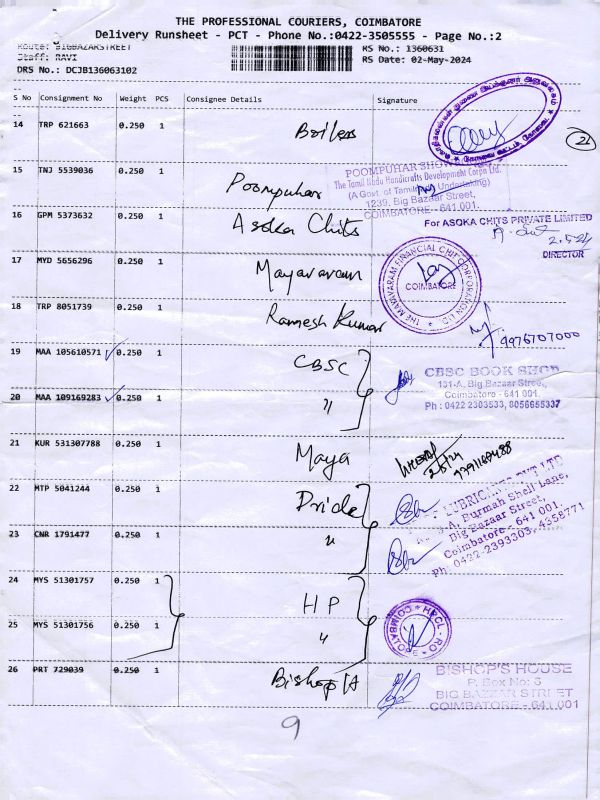 THE PROFESSIONAL COURIERS, COIMBATORE
Delivery Runsheet - PCT - Phone No.:0422-3505555 - Page No.:2
Route: BIGBAZARSTREET
RS No.: 1360631
Staff: RAVI
RS Date: 02-May-2024
DRS No.: DCJB136063102
S No Consignment No Weight PCS Consignee Details Signature
14 TRP 621663 0.250 1 Boilers
21
15 TNJ 5539036 0.250 1 Poompuhar
POOMPUHAR SHOW
The Tamil Nadu Handicrafts Development Corpn Ltd.
(A Govt. of Tamil Undertaking)
1239, Big Bazaar Street,
COIMBATORE - 641 001.
16 GPM 5373632 0.250 1 Asoka Chits
For ASOKA CHITS PRIVATE LIMITED
2.5.24
DIRECTOR
17 MYD 5656296 0.250 1 Mayavaram
THE MAYAVARAM FINANCIAL CHIT CORPORATION LTD
COIMBATORE
18 TRP 8051739 0.250 1 Ramesh Kumar
9976707000
19 MAA 105610571 0.250 1 CBSC
CBSC BOOK SHOP
131-A, Big Bazaar Street,
Coimbatore - 641 001.
Ph : 0422 2303533, 8056655337
20 MAA 109169283 0.250 1 "
21 KUR 531307788 0.250 1 Maya
2/5/24
22 MTP 5041244 0.250 1 Pride
LUBRICANTS PVT LTD
A, Burmah Shell Lane,
Big Bazaar Street,
Coimbatore - 641 001.
Ph : 0422-2393303, 4358771
23 CNR 1791477 0.250 1 "
24 MYS 51301757 0.250 1 HP
25 MYS 51301756 0.250 1 "
HPCL - RO
COIMBATORE
26 PRT 729039 0.250 1 Bishop H
BISHOP'S HOUSE
P. Box No: 3
BIG BAZZAR STREET
COIMBATORE - 641 001
9